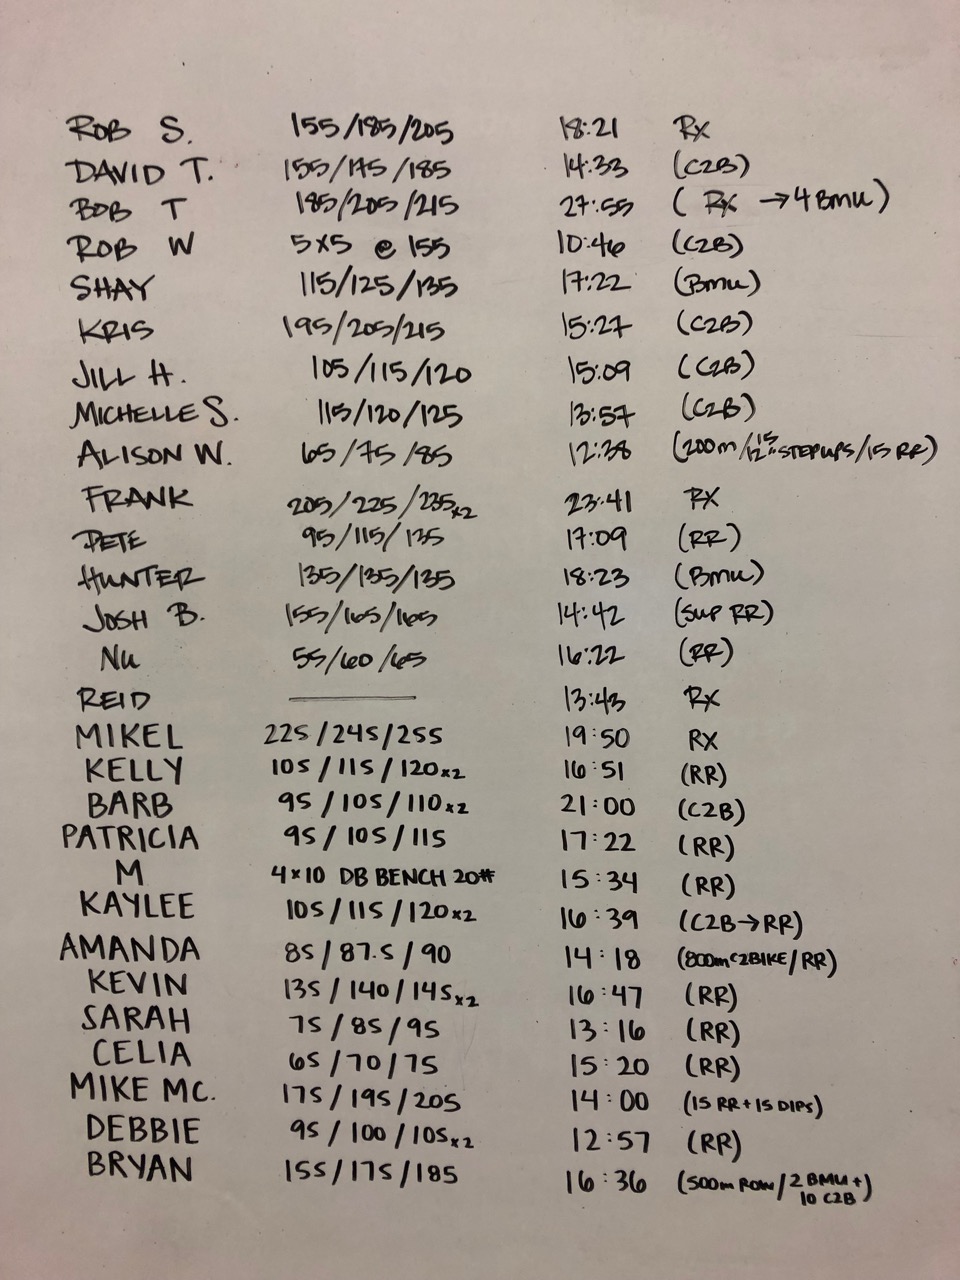 ROB S. 155/185/205 18:21 Rx
DAVID T. 155/175/185 14:33 (C2B)
BOB T 185/205/215 27:55 (Rx → 4 BMU)
ROB W 5x5 @ 155 10:46 (C2B)
SHAY 115/125/135 17:22 (BMU)
KRIS 195/205/215 15:27 (C2B)
JILL H. 105/115/120 15:09 (C2B)
MICHELLE S. 115/120/125 13:57 (C2B)
ALISON W. 65/75/85 12:38 (200m/15 12" STEPUPS/15 RR)
FRANK 205/225/235x2 23:41 RX
PETE 95/115/135 17:09 (RR)
HUNTER 135/135/135 18:23 (BMU)
JOSH B. 155/165/165 14:42 (SUP RR)
NU 55/60/65 16:22 (RR)
REID 13:43 RX
MIKEL 225/245/255 19:50 RX
KELLY 105/115/120x2 16:51 (RR)
BARB 95/105/110x2 21:00 (C2B)
PATRICIA 95/105/115 17:22 (RR)
M 4x10 DB BENCH 20# 15:34 (RR)
KAYLEE 105/115/120x2 16:39 (C2B→RR)
AMANDA 85/87.5/90 14:18 (800m C2BIKE/RR)
KEVIN 135/140/145x2 16:47 (RR)
SARAH 75/85/95 13:16 (RR)
CELIA 65/70/75 15:20 (RR)
MIKE MC. 175/195/205 14:00 (15 RR + 15 DIPS)
DEBBIE 95/100/105x2 12:57 (RR)
BRYAN 155/175/185 16:36 (500m ROW/2 BMU + 10 C2B)